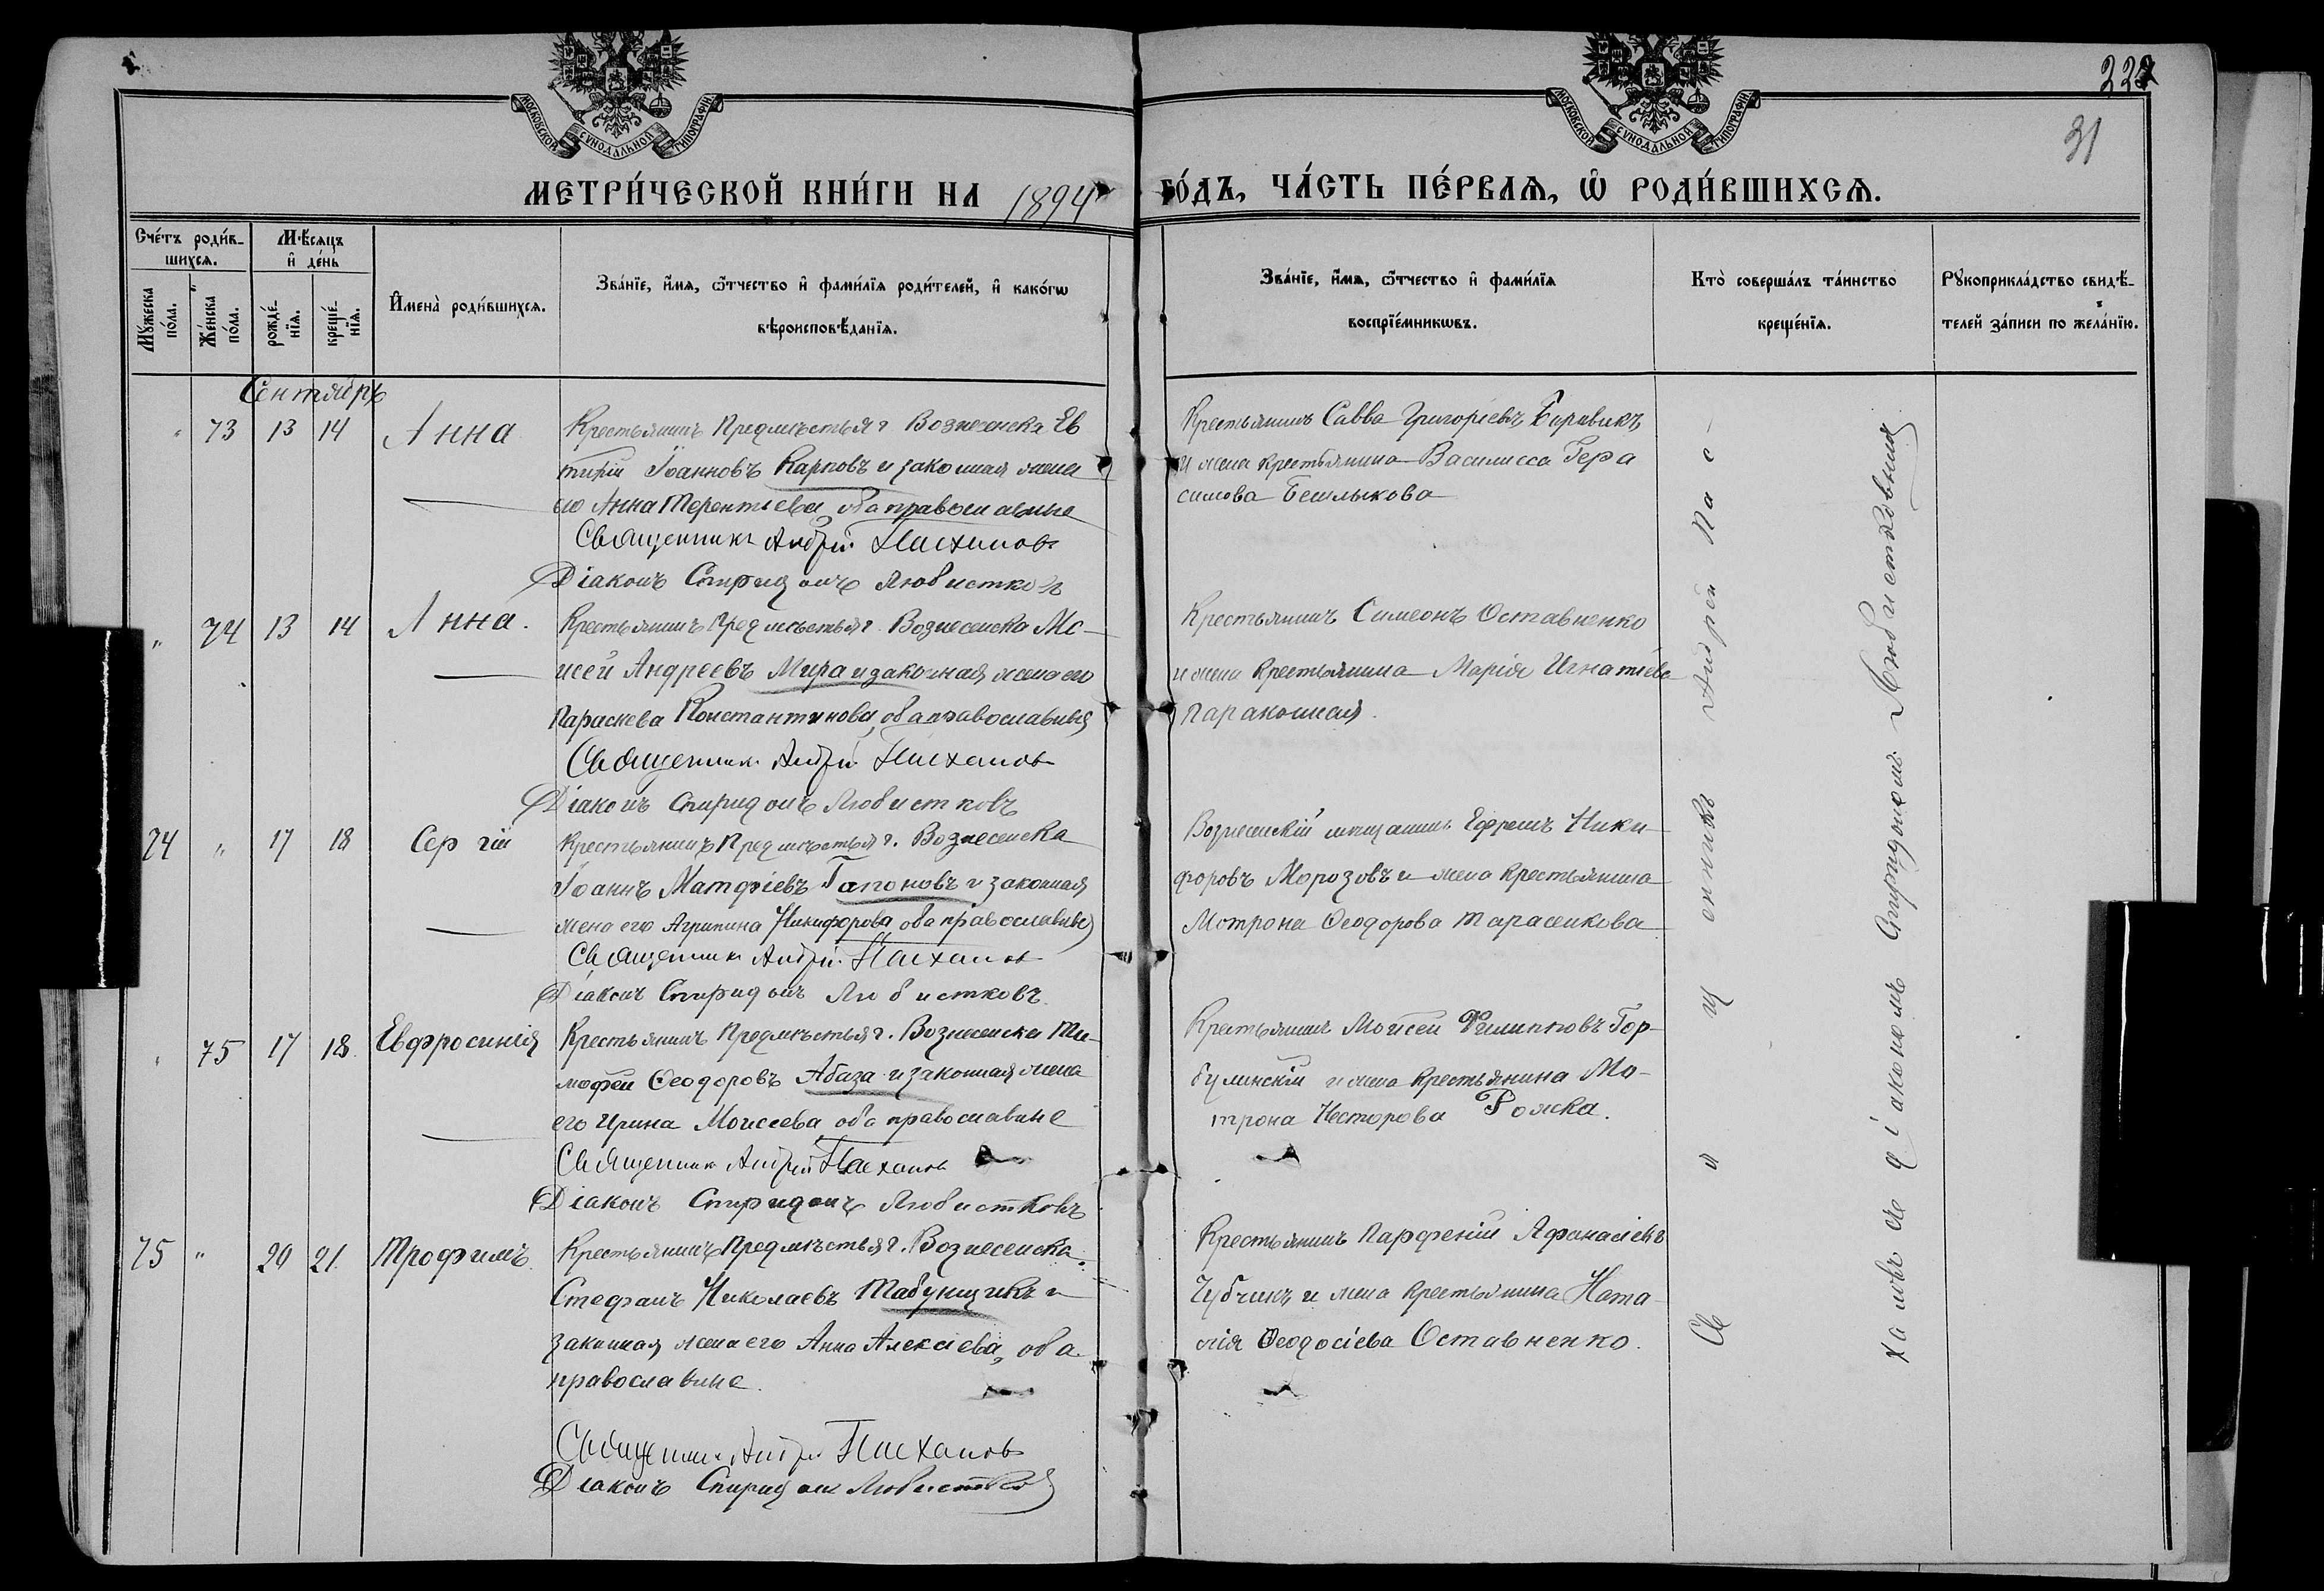 МОСКОВСКОЙ СУНОДАЛЬНОЙ ТИПОГРАФІИ
МОСКОВСКОЙ СУНОДАЛЬНОЙ ТИПОГРАФІИ
31
МЕТРИ́ЧЕСКОЙ КНИ́ГИ НА 1894 ГО́ДЪ, ЧА́СТЬ ПЕ́РВАЯ, Ѡ҆ РОДИ́ВШИХСѦ.
Сче́тъ роди́в-
шихсѧ.
Мꙋ́жеска по́ла.
Же́нска по́ла.
Мѣ́сѧцъ
и҆ де́нь
рожде́-
нїѧ.
креще́-
нїѧ.
И҆мена̀ роди́вшихсѧ.
Зва́нїе, и҆́мѧ, ѻ҆́тчество и҆ фами́лїѧ роди́телей, и҆ како́гѡ
вѣроисповѣ́данїѧ.
Зва́нїе, и҆́мѧ, ѻ҆́тчество и҆ фами́лїѧ
воспрїе́мникѡвъ.
Кто̀ соверша́лъ та́инство
креще́нїѧ.
Рꙋкоприкла́дство свидѣ́-
телей за́писи по жела́нїю.
Сентябрь
" 73 13 14 Анна
Крестьянинъ Предмѣстья г. Вознесенска Ев
тихій Іоанновъ Карповъ и законная жена
его Анна Терентьева, оба православные
Священникъ Андрей Пасхаловъ
Діаконъ Спиридонъ Любистковъ
Крестьянинъ Савва Григоріевъ
и жена крестьянина Василисса Гера
симова Бешлыкова
" 74 13 14 Анна.
Крестьянинъ Предмѣстья г. Вознесенска Мо-
исей Андреевъ Мура и законная жена его
Параскева Константинова, оба православные
Священникъ Андрей Пасхаловъ
Діаконъ Спиридонъ Любистковъ
Крестьянинъ Симеонъ Оставненко
и жена крестьянина Марія Игнатіева
74 " 17 18 Сергій
Крестьянинъ Предмѣстья г. Вознесенска
Іоаннъ Матфіевъ Гапоновъ и законная
жена его Агрипина Никифорова оба православные
Священникъ Андрей Пасхаловъ
Діаконъ Спиридонъ Любистковъ
Вознесенскій мѣщанинъ Ефремъ Ники-
форовъ Морозовъ и жена крестьянина
Мотрона Ѳеодорова Тарасенкова
" 75 17 18 Евфросинія
Крестьянинъ Предмѣстья г. Вознесенска Ти-
мофей Ѳеодоровъ Абаза и законная жена
его Ирина Моисеева оба православные
Священникъ Андрей Пасхаловъ
Діаконъ Спиридонъ Любистковъ
Крестьянинъ Моисей Филипповъ Гор-
булинскій и жена крестьянина Мо-
трона Несторова
75 " 20 21 Трофимъ.
Крестьянинъ Предмѣстья г. Вознесенска
Стефанъ Николаевъ Табунщикъ и
законная жена его Анна Алексіева, оба
православные.
Священникъ Андрей Пасхаловъ
Діаконъ Спиридонъ Любистковъ
Крестьянинъ Парфеній Афанасіевъ
Чубчикъ и жена крестьянина Ната-
лія Ѳеодосіева Оставненко.
Священникъ Андрей Пас-
халовъ съ діакономъ Спиридономъ Любистковымъ